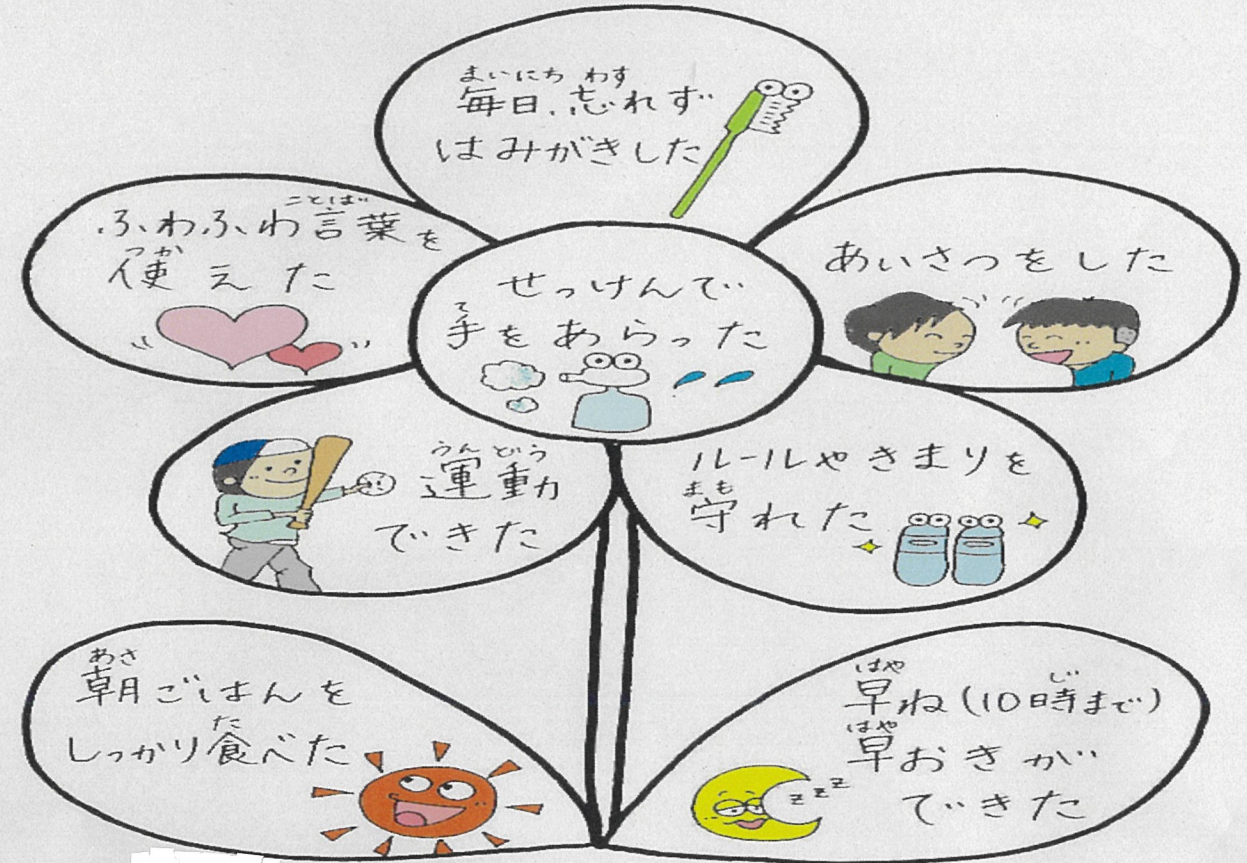 まいにち わす
毎日、忘れず
はみがきした
ことば
ふわふわ言葉を
つか
使えた
せっけんで
て
手をあらった
あいさつをした
うんどう
運動
できた
ルールやきまりを
まも
守れた
あさ
朝ごはんを
た
しっかり食べた
はや じ
早ね(10時まで)
はや
早おきが
できた
z z z